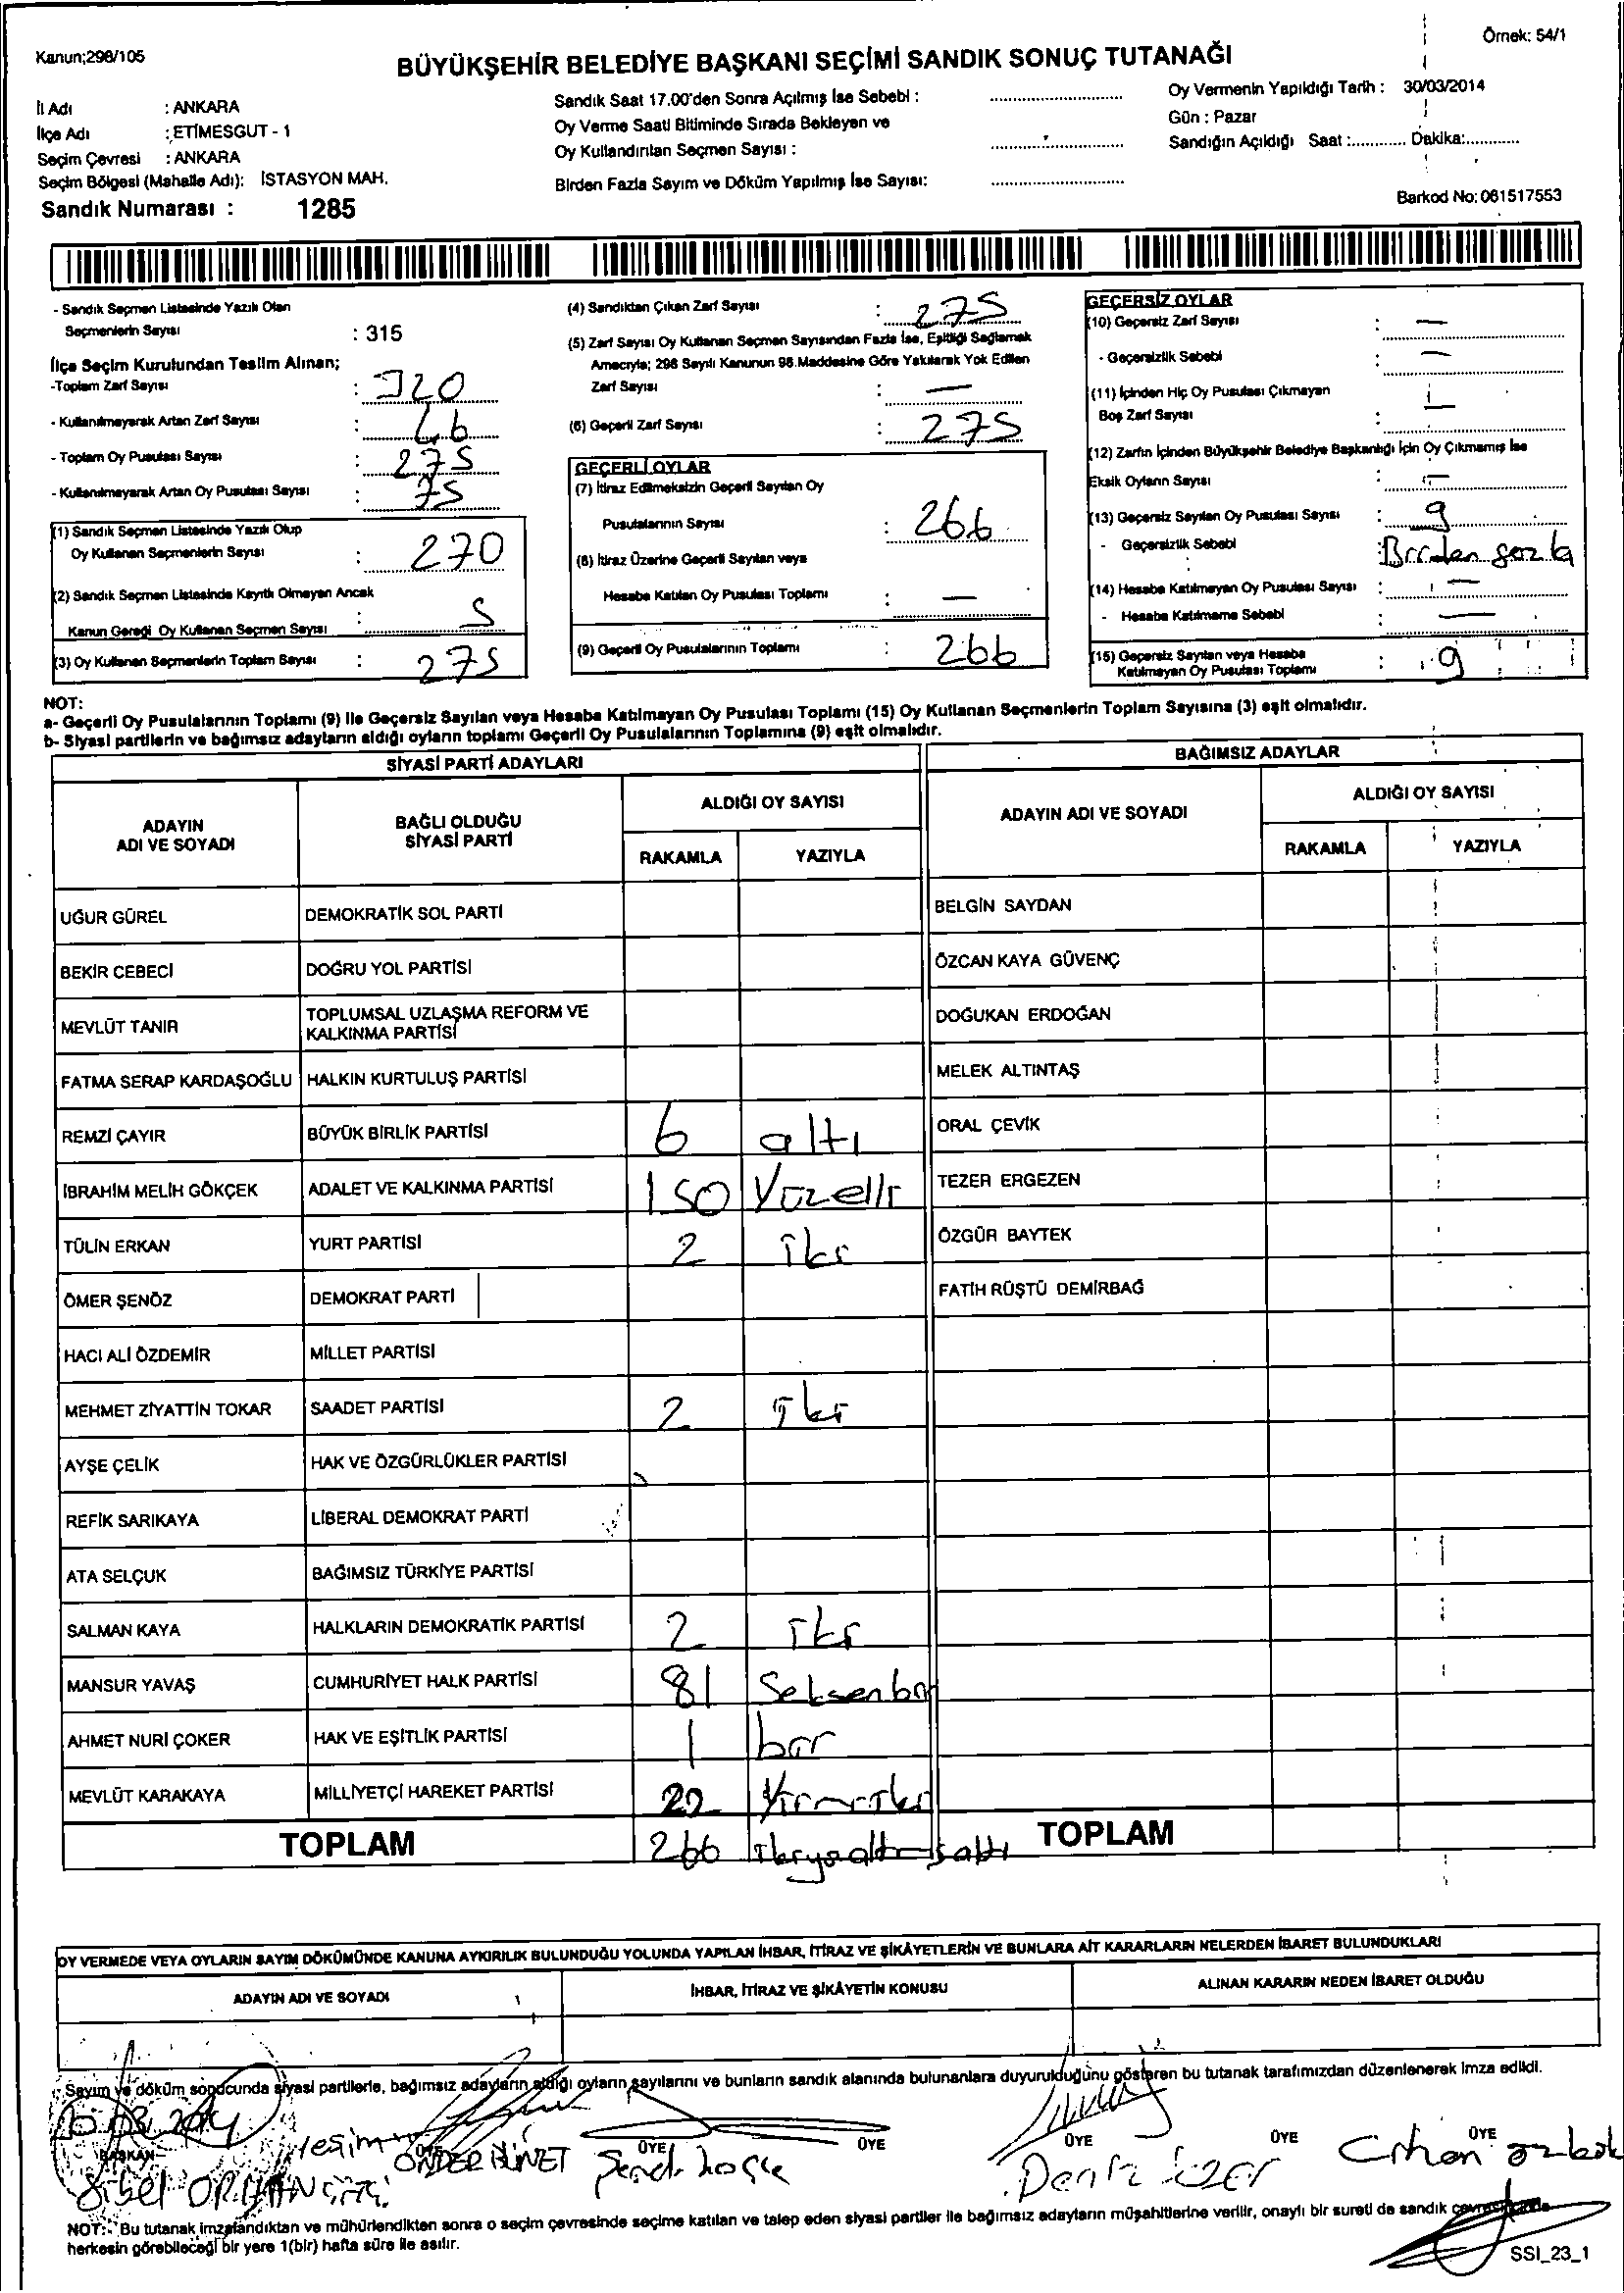 Kanun;298/105
Örnek: 54/1
BÜYÜKŞEHİR BELEDİYE BAŞKANI SEÇİMİ SANDIK SONUÇ TUTANAĞI
İl Adı : ANKARA
İlçe Adı : ETİMESGUT - 1
Seçim Çevresi : ANKARA
Seçim Bölgesi (Mahalle Adı): İSTASYON MAH.
Sandık Numarası : 1285
Sandık Saat 17.00'den Sonra Açılmış İse Sebebi :
Oy Verme Saati Bitiminde Sırada Bekleyen ve
Oy Kullandırılan Seçmen Sayısı :
Birden Fazla Sayım ve Döküm Yapılmış İse Sayısı:
Oy Vermenin Yapıldığı Tarih : 30/03/2014
Gün : Pazar
Sandığın Açıldığı Saat :............ Dakika:............
Barkod No: 061517553
- Sandık Seçmen Listesinde Yazılı Olan
Seçmenlerin Sayısı : 315
İlçe Seçim Kurulundan Teslim Alınan;
-Toplam Zarf Sayısı : 320
- Kullanılmayarak Artan Zarf Sayısı :
- Toplam Oy Pusulası Sayısı : 275
- Kullanılmayarak Artan Oy Pusulası Sayısı : 75
(1) Sandık Seçmen Listesinde Yazılı Olup
Oy Kullanan Seçmenlerin Sayısı : 270
(2) Sandık Seçmen Listesinde Kayıtlı Olmayan Ancak
Kanun Gereği Oy Kullanan Seçmen Sayısı : 5
(3) Oy Kullanan Seçmenlerin Toplam Sayısı : 275
(4) Sandıktan Çıkan Zarf Sayısı : 275
(5) Zarf Sayısı Oy Kullanan Seçmen Sayısından Fazla İse, Eşitliği Sağlamak
Amacıyla; 298 Sayılı Kanunun 98.Maddesine Göre Yakılarak Yok Edilen
Zarf Sayısı : —
(6) Geçerli Zarf Sayısı : 275
GEÇERLİ OYLAR
(7) İtiraz Edilmeksizin Geçerli Sayılan Oy
Pusulalarının Sayısı : 266
(8) İtiraz Üzerine Geçerli Sayılan veya
Hesaba Katılan Oy Pusulası Toplamı : —
(9) Geçerli Oy Pusulalarının Toplamı : 266
GEÇERSİZ OYLAR
(10) Geçersiz Zarf Sayısı : —
- Geçersizlik Sebebi : —
(11) İçinden Hiç Oy Pusulası Çıkmayan
Boş Zarf Sayısı : —
(12) Zarfın İçinden Büyükşehir Belediye Başkanlığı İçin Oy Çıkmamış İse
Eksik Oyların Sayısı : —
(13) Geçersiz Sayılan Oy Pusulası Sayısı : 9
- Geçersizlik Sebebi : Birden fazla
(14) Hesaba Katılmayan Oy Pusulası Sayısı : —
- Hesaba Katılmama Sebebi : —
(15) Geçersiz Sayılan veya Hesaba
Katılmayan Oy Pusulası Toplamı : 9
NOT:
a- Geçerli Oy Pusulalarının Toplamı (9) ile Geçersiz Sayılan veya Hesaba Katılmayan Oy Pusulası Toplamı (15) Oy Kullanan Seçmenlerin Toplam Sayısına (3) eşit olmalıdır.
b- Siyasi partilerin ve bağımsız adayların aldığı oyların toplamı Geçerli Oy Pusulalarının Toplamına (9) eşit olmalıdır.
SİYASİ PARTİ ADAYLARI
ADAYIN ADI VE SOYADI
BAĞLI OLDUĞU SİYASİ PARTİ
ALDIĞI OY SAYISI
RAKAMLA YAZIYLA
UĞUR GÜREL DEMOKRATİK SOL PARTİ
BEKİR CEBECİ DOĞRU YOL PARTİSİ
MEVLÜT TANIR TOPLUMSAL UZLAŞMA REFORM VE
KALKINMA PARTİSİ
FATMA SERAP KARDAŞOĞLU HALKIN KURTULUŞ PARTİSİ
REMZİ ÇAYIR BÜYÜK BİRLİK PARTİSİ 6 altı
İBRAHİM MELİH GÖKÇEK ADALET VE KALKINMA PARTİSİ 150 Yüzelli
TÜLİN ERKAN YURT PARTİSİ 2 iki
ÖMER ŞENÖZ DEMOKRAT PARTİ
HACI ALİ ÖZDEMİR MİLLET PARTİSİ
MEHMET ZİYATTİN TOKAR SAADET PARTİSİ 2 iki
AYŞE ÇELİK HAK VE ÖZGÜRLÜKLER PARTİSİ
REFİK SARIKAYA LİBERAL DEMOKRAT PARTİ
ATA SELÇUK BAĞIMSIZ TÜRKİYE PARTİSİ
SALMAN KAYA HALKLARIN DEMOKRATİK PARTİSİ 2 iki
MANSUR YAVAŞ CUMHURİYET HALK PARTİSİ 81 Seksenbir
AHMET NURİ ÇOKER HAK VE EŞİTLİK PARTİSİ 1 bir
MEVLÜT KARAKAYA MİLLİYETÇİ HAREKET PARTİSİ 22 Yirmiiki
TOPLAM 266 ikiyüzaltmışaltı
BAĞIMSIZ ADAYLAR
ADAYIN ADI VE SOYADI
ALDIĞI OY SAYISI
RAKAMLA YAZIYLA
BELGİN SAYDAN
ÖZCAN KAYA GÜVENÇ
DOĞUKAN ERDOĞAN
MELEK ALTINTAŞ
ORAL ÇEVİK
TEZER ERGEZEN
ÖZGÜR BAYTEK
FATİH RÜŞTÜ DEMİRBAĞ
TOPLAM
OY VERMEDE VEYA OYLARIN SAYIM DÖKÜMÜNDE KANUNA AYKIRILIK BULUNDUĞU YOLUNDA YAPILAN İHBAR, İTİRAZ VE ŞİKÂYETLERİN VE BUNLARA AİT KARARLARIN NELERDEN İBARET BULUNDUKLARI
ADAYIN ADI VE SOYADI İHBAR, İTİRAZ VE ŞİKÂYETİN KONUSU ALINAN KARARIN NEDEN İBARET OLDUĞU
Sayım ve döküm sonucunda siyasi partilerle, bağımsız adayların aldığı oyların sayılarını ve bunların sandık alanında bulunanlara duyurulduğunu gösteren bu tutanak tarafımızdan düzenlenerek imza edildi.
BAŞKAN ÜYE ÜYE ÜYE ÜYE ÜYE ÜYE
Sibel ORHAN
Yeşim
ÖNDER
Deniz
NOT: Bu tutanak imzalandıktan ve mühürlendikten sonra o seçim çevresinde seçime katılan ve talep eden siyasi partiler ile bağımsız adayların müşahitlerine verilir, onaylı bir sureti de sandık çevresinde
herkesin görebileceği bir yere 1(bir) hafta süre ile asılır.
SSI_23_1